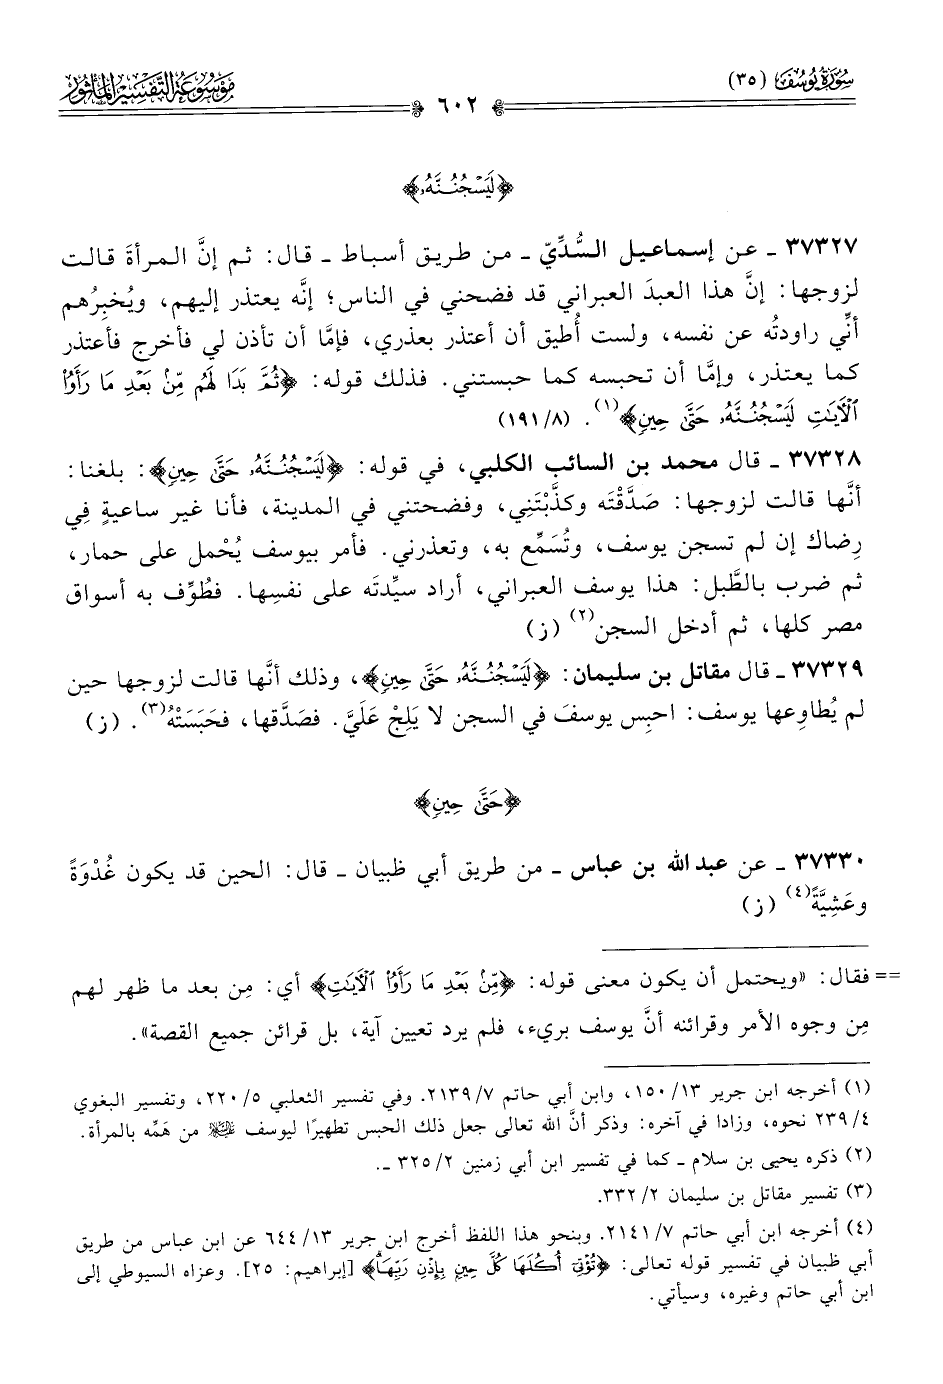 سُورَةُ يُوسُفَ (٣٥)
٦٠٢
مَوْسُوعَةُ التَّفْسِيرِ المَأْثُورِ
﴿لَيَسْجُنُنَّهُۥ﴾
٣٧٣٢٧ ـ عن إسماعيل السُّدِّيّ ـ من طريق أسباط ـ قال: ثم إنَّ المرأةَ قالت
لزوجها: إنَّ هذا العبدَ العبراني قد فضحني في الناس؛ إنَّه يعتذر إليهم، ويُخبِرُهم
أنِّي راودتُه عن نفسه، ولست أُطيق أن أعتذر بعذري، فإمَّا أن تأذن لي فأخرج فأعتذر
كما يعتذر، وإمَّا أن تحبسه كما حبستني. فذلك قوله: ﴿ثُمَّ بَدَا لَهُم مِّنۢ بَعْدِ مَا رَأَوُا۟
ٱلْأَيَٰتِ لَيَسْجُنُنَّهُۥ حَتَّىٰ حِينٍ﴾(١). (٨/ ١٩١)
٣٧٣٢٨ ـ قال محمد بن السائب الكلبي، في قوله: ﴿لَيَسْجُنُنَّهُۥ حَتَّىٰ حِينٍ﴾: بلغنا:
أنَّها قالت لزوجها: صَدَّقْتَه وكذَّبْتَنِي، وفضحتني في المدينة، فأنا غير ساعيةٍ فِي
رِضاك إن لم تسجن يوسف، وتُسَمِّع به، وتعذرني. فأمر بيوسف يُحْمل على حمار،
ثم ضرب بالطَّبل: هذا يوسف العبراني، أراد سيِّدتَه على نفسِها. فطُوِّف به أسواق
مصر كلها، ثم أدخل السجن(٢) (ز)
٣٧٣٢٩ ـ قال مقاتل بن سليمان: ﴿لَيَسْجُنُنَّهُۥ حَتَّىٰ حِينٍ﴾، وذلك أنَّها قالت لزوجها حين
لم يُطاوِعها يوسف: احبِس يوسفَ في السجن لا يَلِجْ عَلَيَّ. فصَدَّقها، فحَبَسَتْهُ(٣). (ز)
﴿حَتَّىٰ حِينٍ﴾
٣٧٣٣٠ ـ عن عبد الله بن عباس ـ من طريق أبي ظبيان ـ قال: الحين قد يكون غُدْوَةً
وعَشِيَّةً(٤) (ز)
== فقال: «ويحتمل أن يكون معنى قوله: ﴿مِّنۢ بَعْدِ مَا رَأَوُا۟ ٱلْأَيَٰتِ﴾ أي: مِن بعد ما ظهر لهم
مِن وجوه الأمر وقرائنه أنَّ يوسف بريء، فلم يرد تعيين آية، بل قرائن جميع القصة».
(١) أخرجه ابن جرير ١٣/ ١٥٠، وابن أبي حاتم ٧/ ٢١٣٩. وفي تفسير الثعلبي ٥/ ٢٢٠، وتفسير البغوي
٤/ ٢٣٩ نحوه، وزادا في آخره: وذكر أنَّ الله تعالى جعل ذلك الحبس تطهيرًا ليوسف ﵇ من هَمِّه بالمرأة.
(٢) ذكره يحيى بن سلام ـ كما في تفسير ابن أبي زمنين ٢/ ٣٢٥ ـ.
(٣) تفسير مقاتل بن سليمان ٢/ ٣٣٢.
(٤) أخرجه ابن أبي حاتم ٧/ ٢١٤١. وبنحو هذا اللفظ أخرج ابن جرير ١٣/ ٦٤٤ عن ابن عباس من طريق
أبي ظبيان في تفسير قوله تعالى: ﴿تُؤْتِىٓ أُكُلَهَا كُلَّ حِينٍۭ بِإِذْنِ رَبِّهَا﴾ [إبراهيم: ٢٥]. وعزاه السيوطي إلى
ابن أبي حاتم وغيره، وسيأتي.